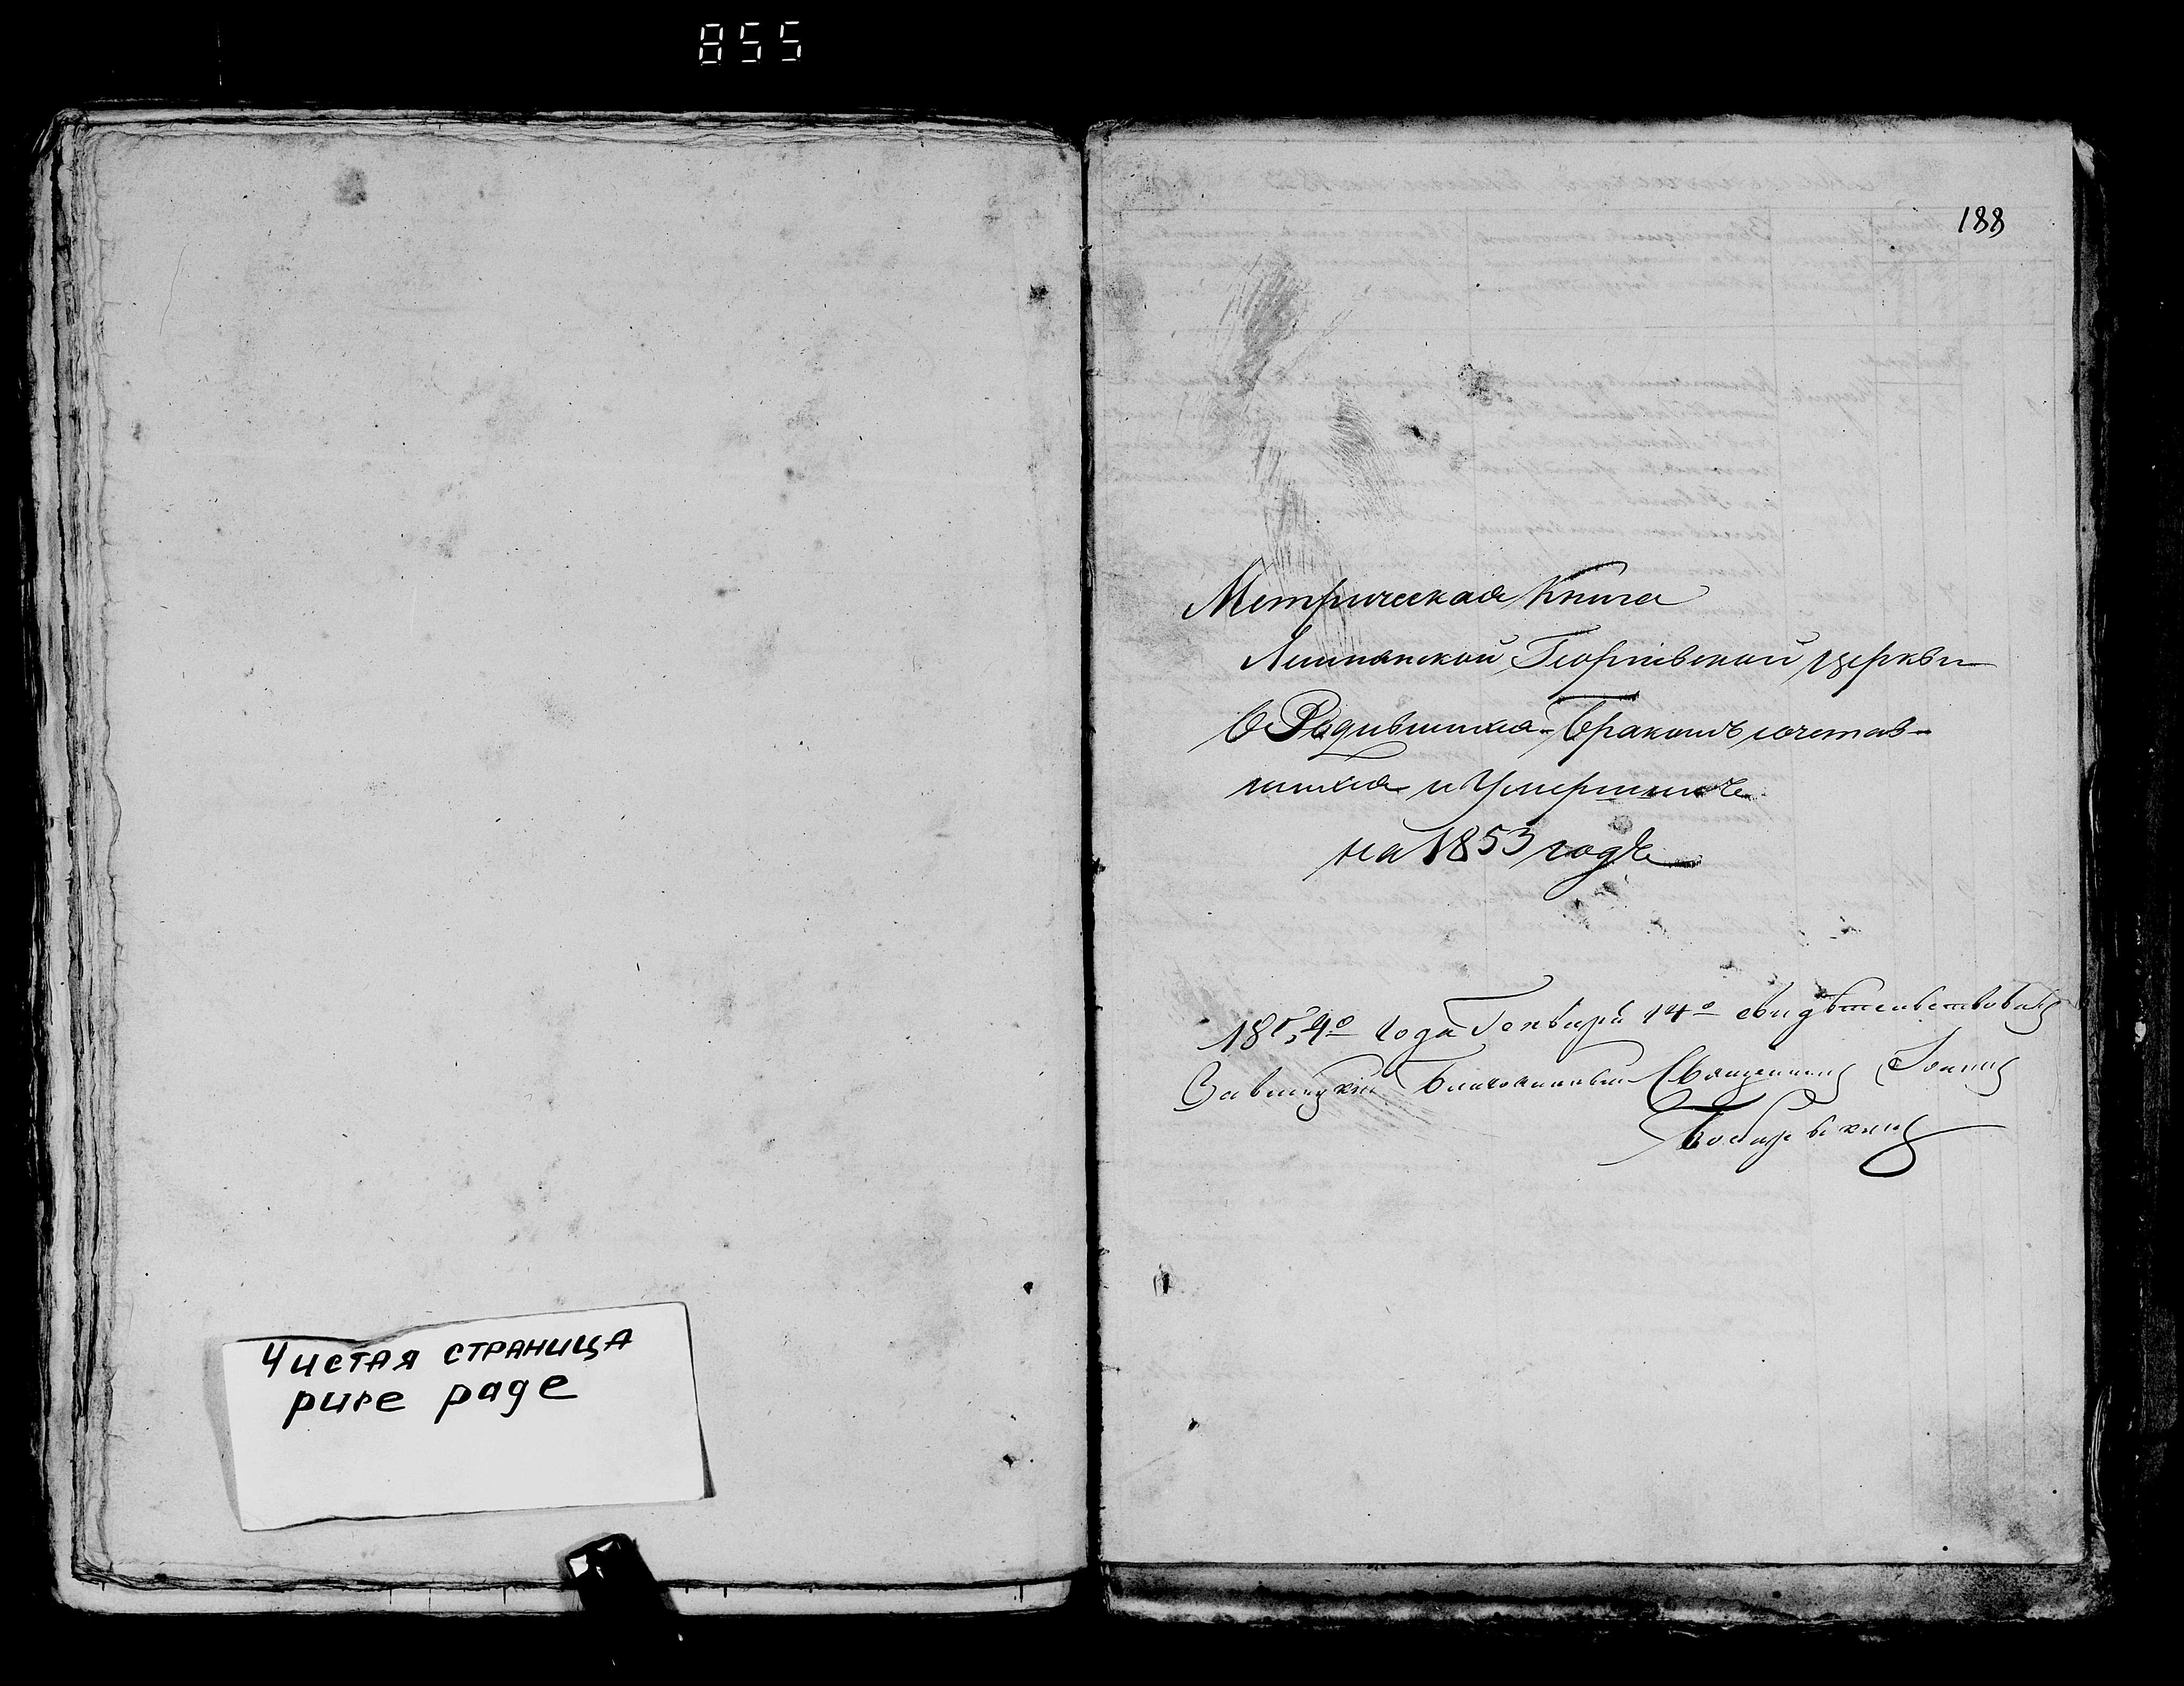 855
Чистая страница
pure page
188
Метрическая Книга
Георгіевской церкви
О Родившихся Бракомъ сочетав-
шихся и Умершихъ
на 1853 годъ
1854го Года Генваря 14го свидѣтельствовалъ
Благочинный Священникъ Іоаннъ